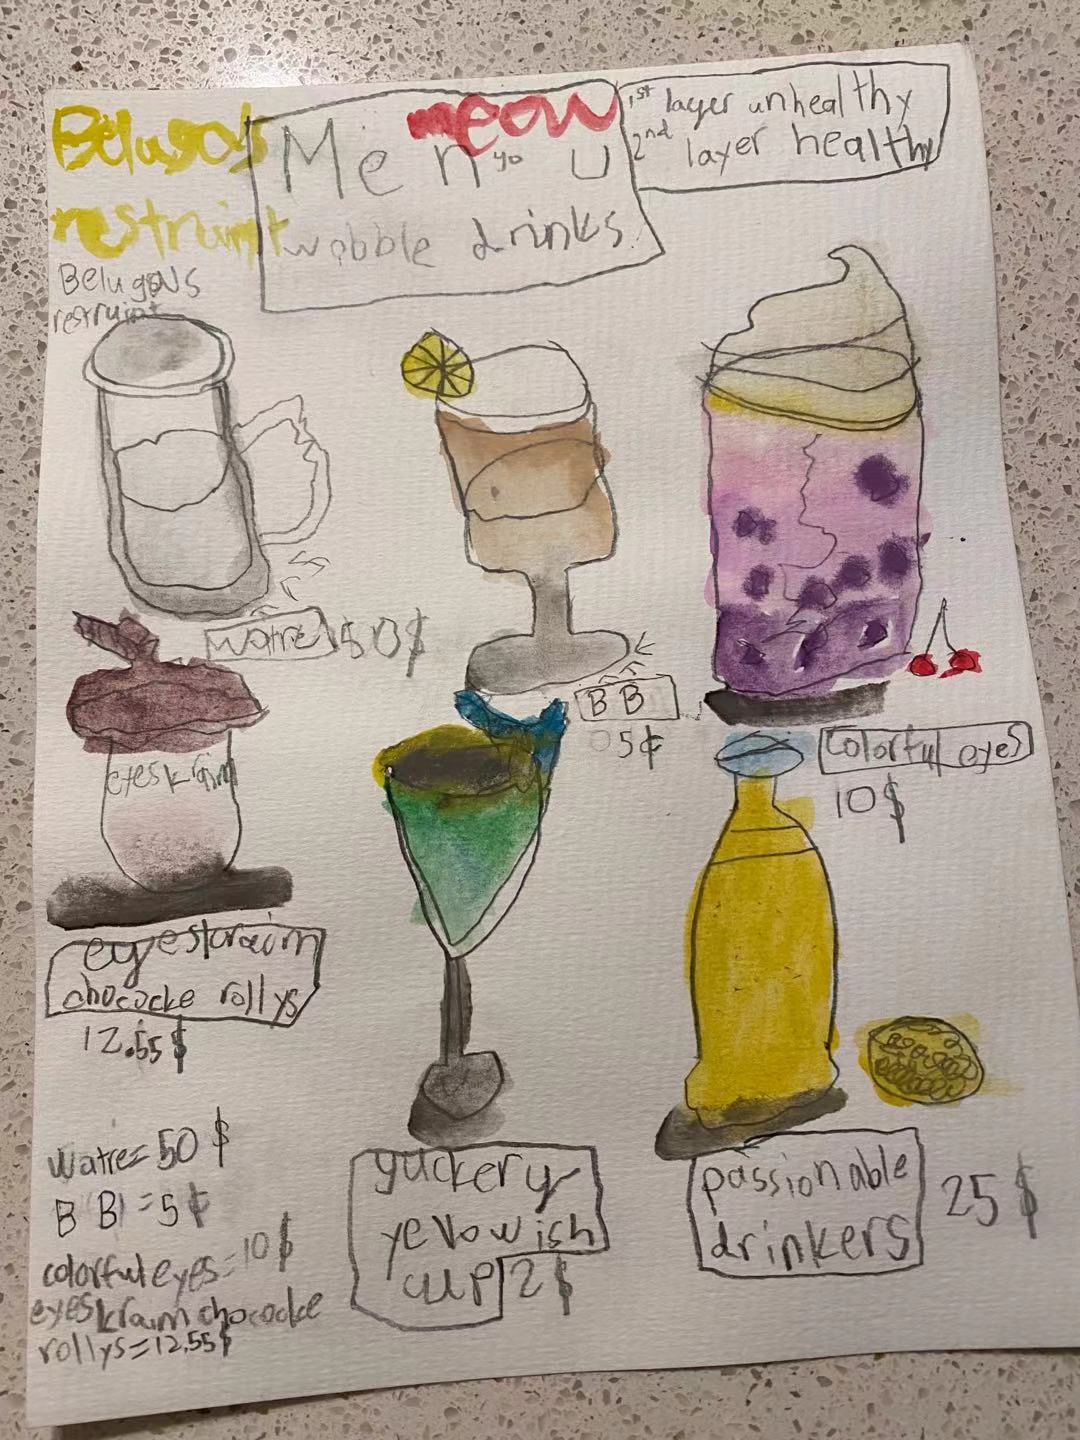 Belugas's
restruint
Belugas's
restruint
meow
Me n yo u
wobble drinks
1st layer unhealthy
2nd layer healthy
watre 50$
B B
05¢
colorful eyes
10$
eyeskraim
eyeskraim
chococke rollys
12.55$
yuckery
yellowish
cup 2$
passionable
drinkers
25$
watre=50$
B B=5¢
colorful eyes=10$
eyeskraim chococke
rollys=12.55$